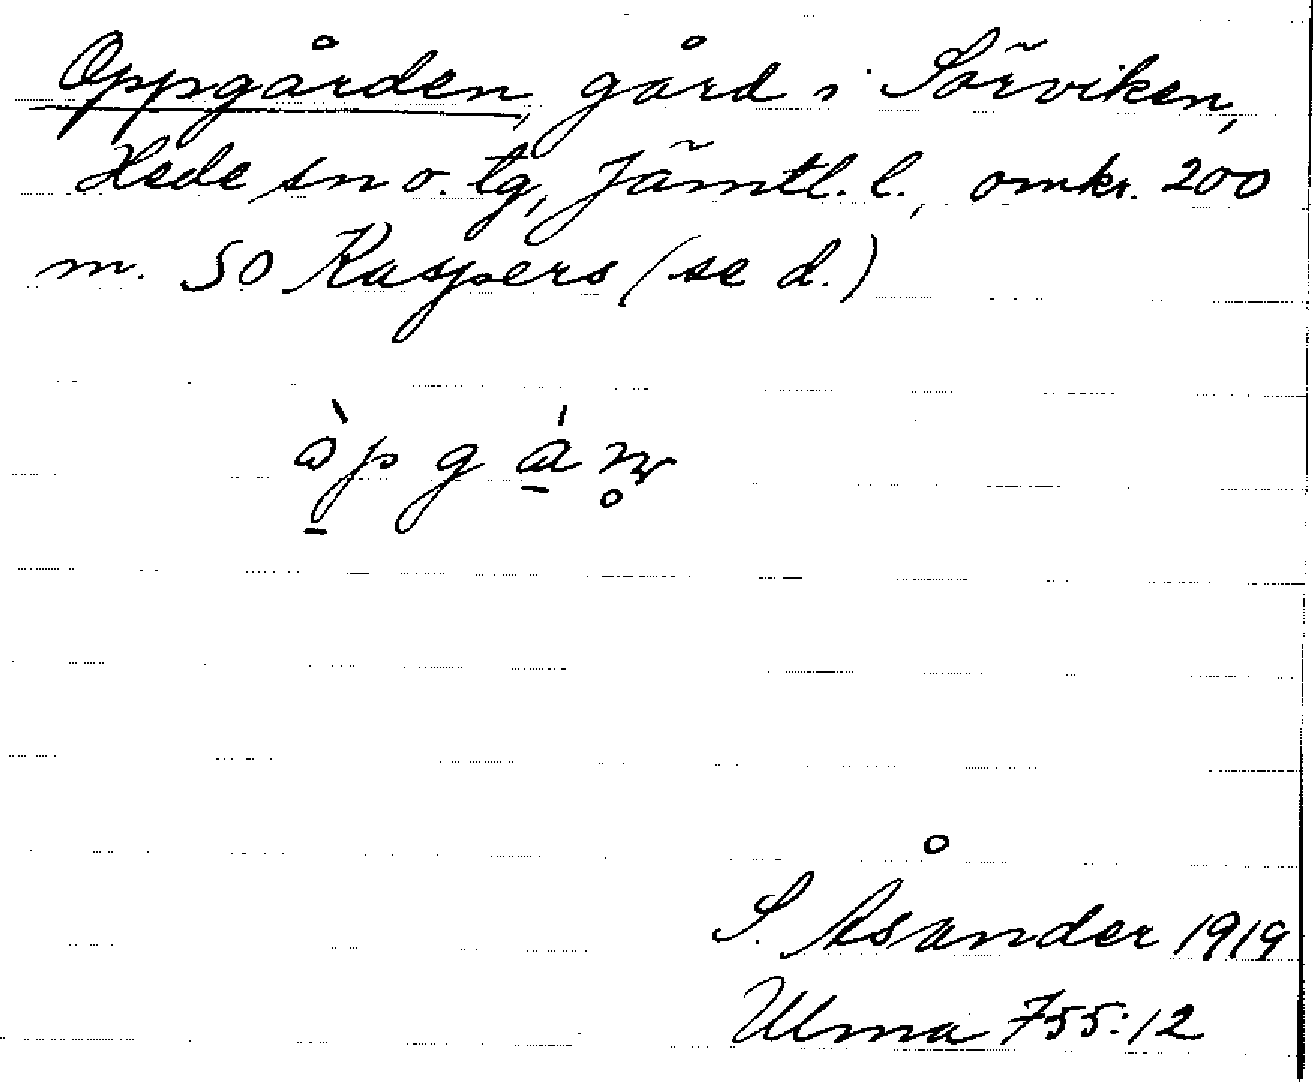 Oppgården, gård i Sörviken,
Hede sn o. tg, Jämtl. l., omkr. 200
m. SO Kaspers (se d.)
S. Åsander 1919
Ulma 755:12